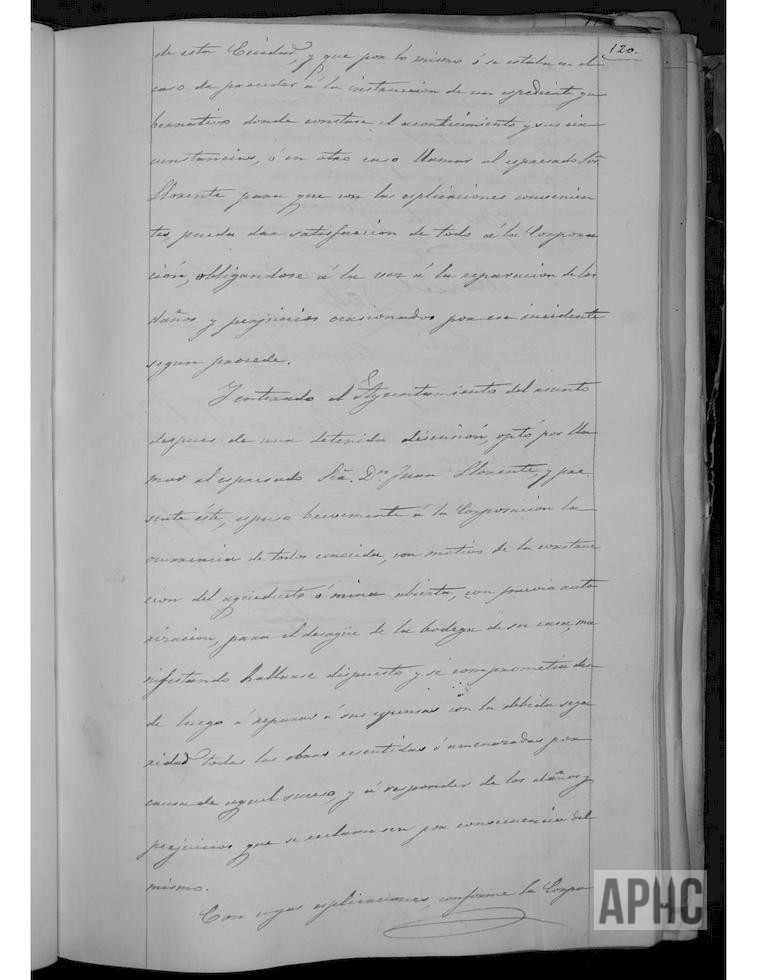 120.
de esta Ciudad, y que por lo mismo ó se estaba en el
caso de proceder á la instruccion de un espediente gu
bernativo donde constase el acontecimiento y sus cir
cunstancias, ó en otro caso llamar al espresado Sor.
Llorente para que con las esplicaciones convenien
tes, pueda dar satisfaccion de todo á la Corpora
ción, obligandose á la vez á la reparacion de los
daños y perjuicios ocasionados por ese incidente
segun procede.
Y enterado el Ayuntamiento del asunto
despues de una detenida discusión, optó por lla
mar al espresado Sor. Dn. Juan Llorente, y pre
sente éste, espuso brevemente á la Corporacion la
ocurrencia de todos conocida, con motivo de la construc
cion del agüeducto ó mina abierta, con previa auto
rizacion, para el desagüe de la bodega de su casa, ma
nifestando hallarse dispuesto y se comprometia des
de luego á reparar á sus espensas con la debida segu
ridad todas las obras resentidas ó amenazadas por
causa de aquel suceso, y á responder de los daños y
perjuicios que se reclamasen por consecuencia del
mismo.
Con cuyas esplicaciones, conforme la Corpo
APHC